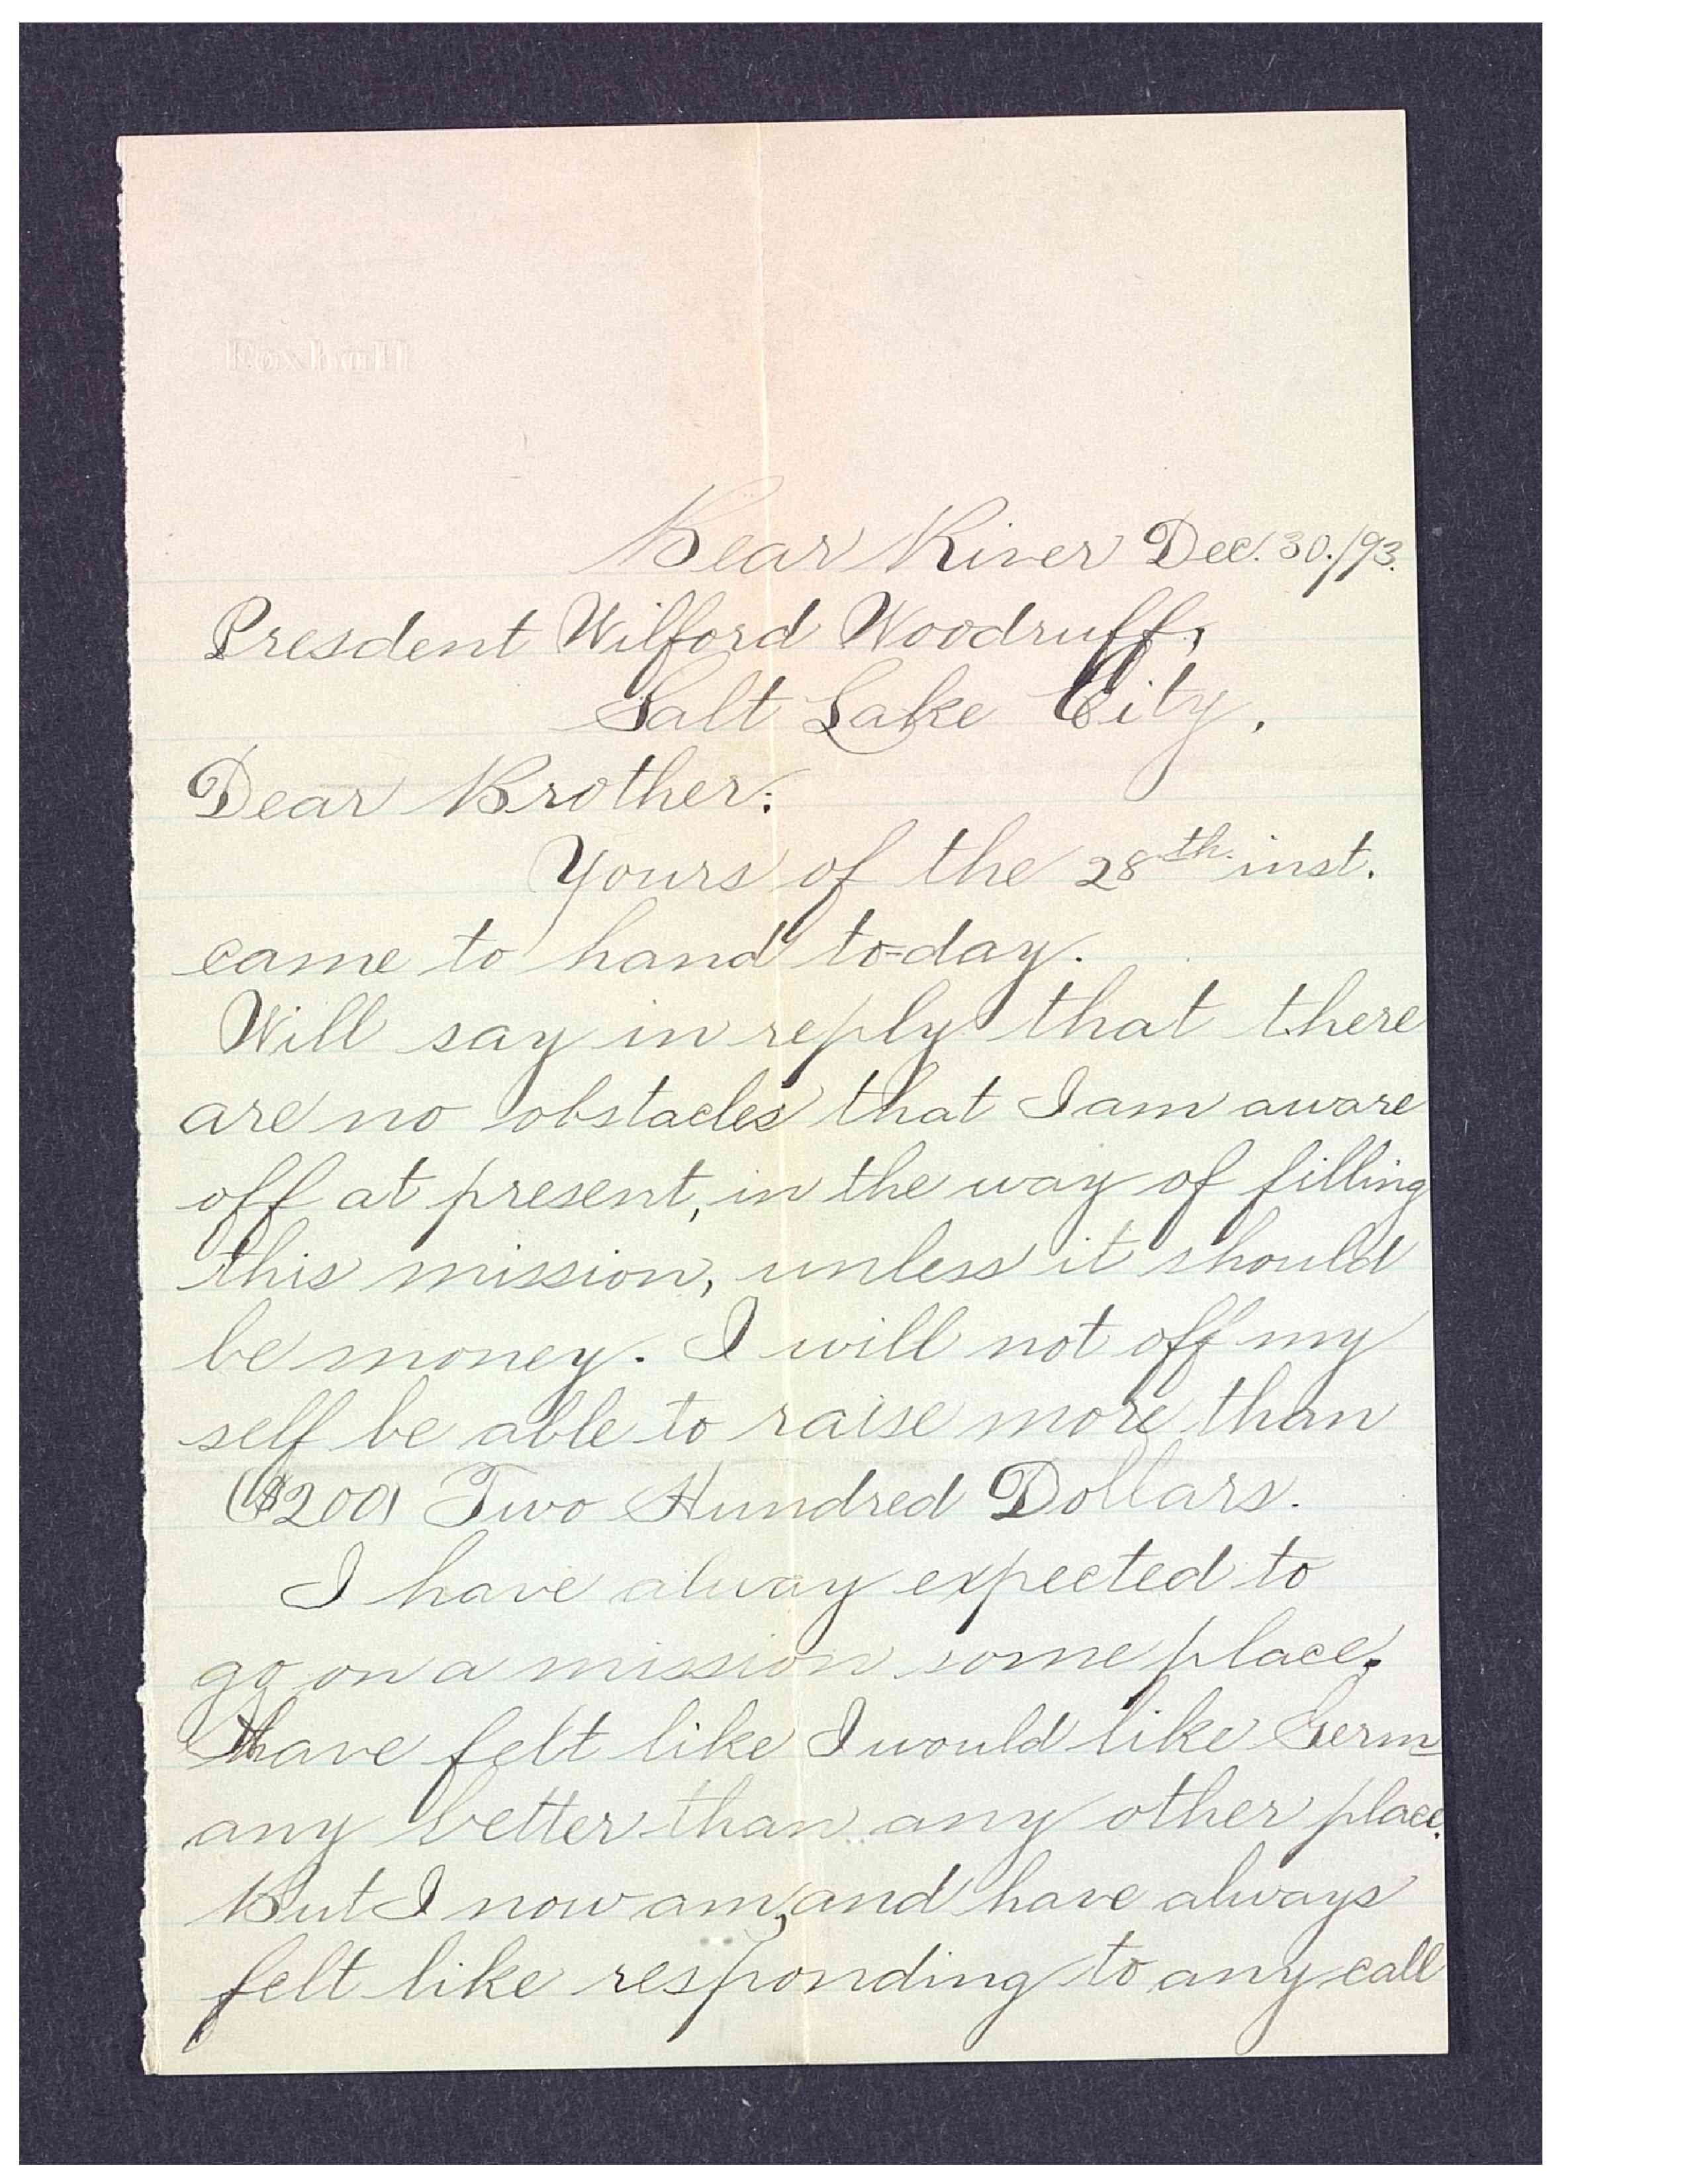 Foxhall
Bear River Dec. 30./93.
Presdent Wilford Woodruff,
Salt Lake City.
Dear Brother:
Yours of the 28th. inst.
came to hand to-day.
Will say in reply that there
are no obstacles that I am aware
off at present, in the way of filling
this mission, unless it should
be money. I will not off my
self be able to raise more than
($200) Two Hundred Dollars.
I have alway expected to
go on a mission some place.
Have felt like I would like Germ-
any better than any other place.
But I now am, and have always
felt like responding to any call